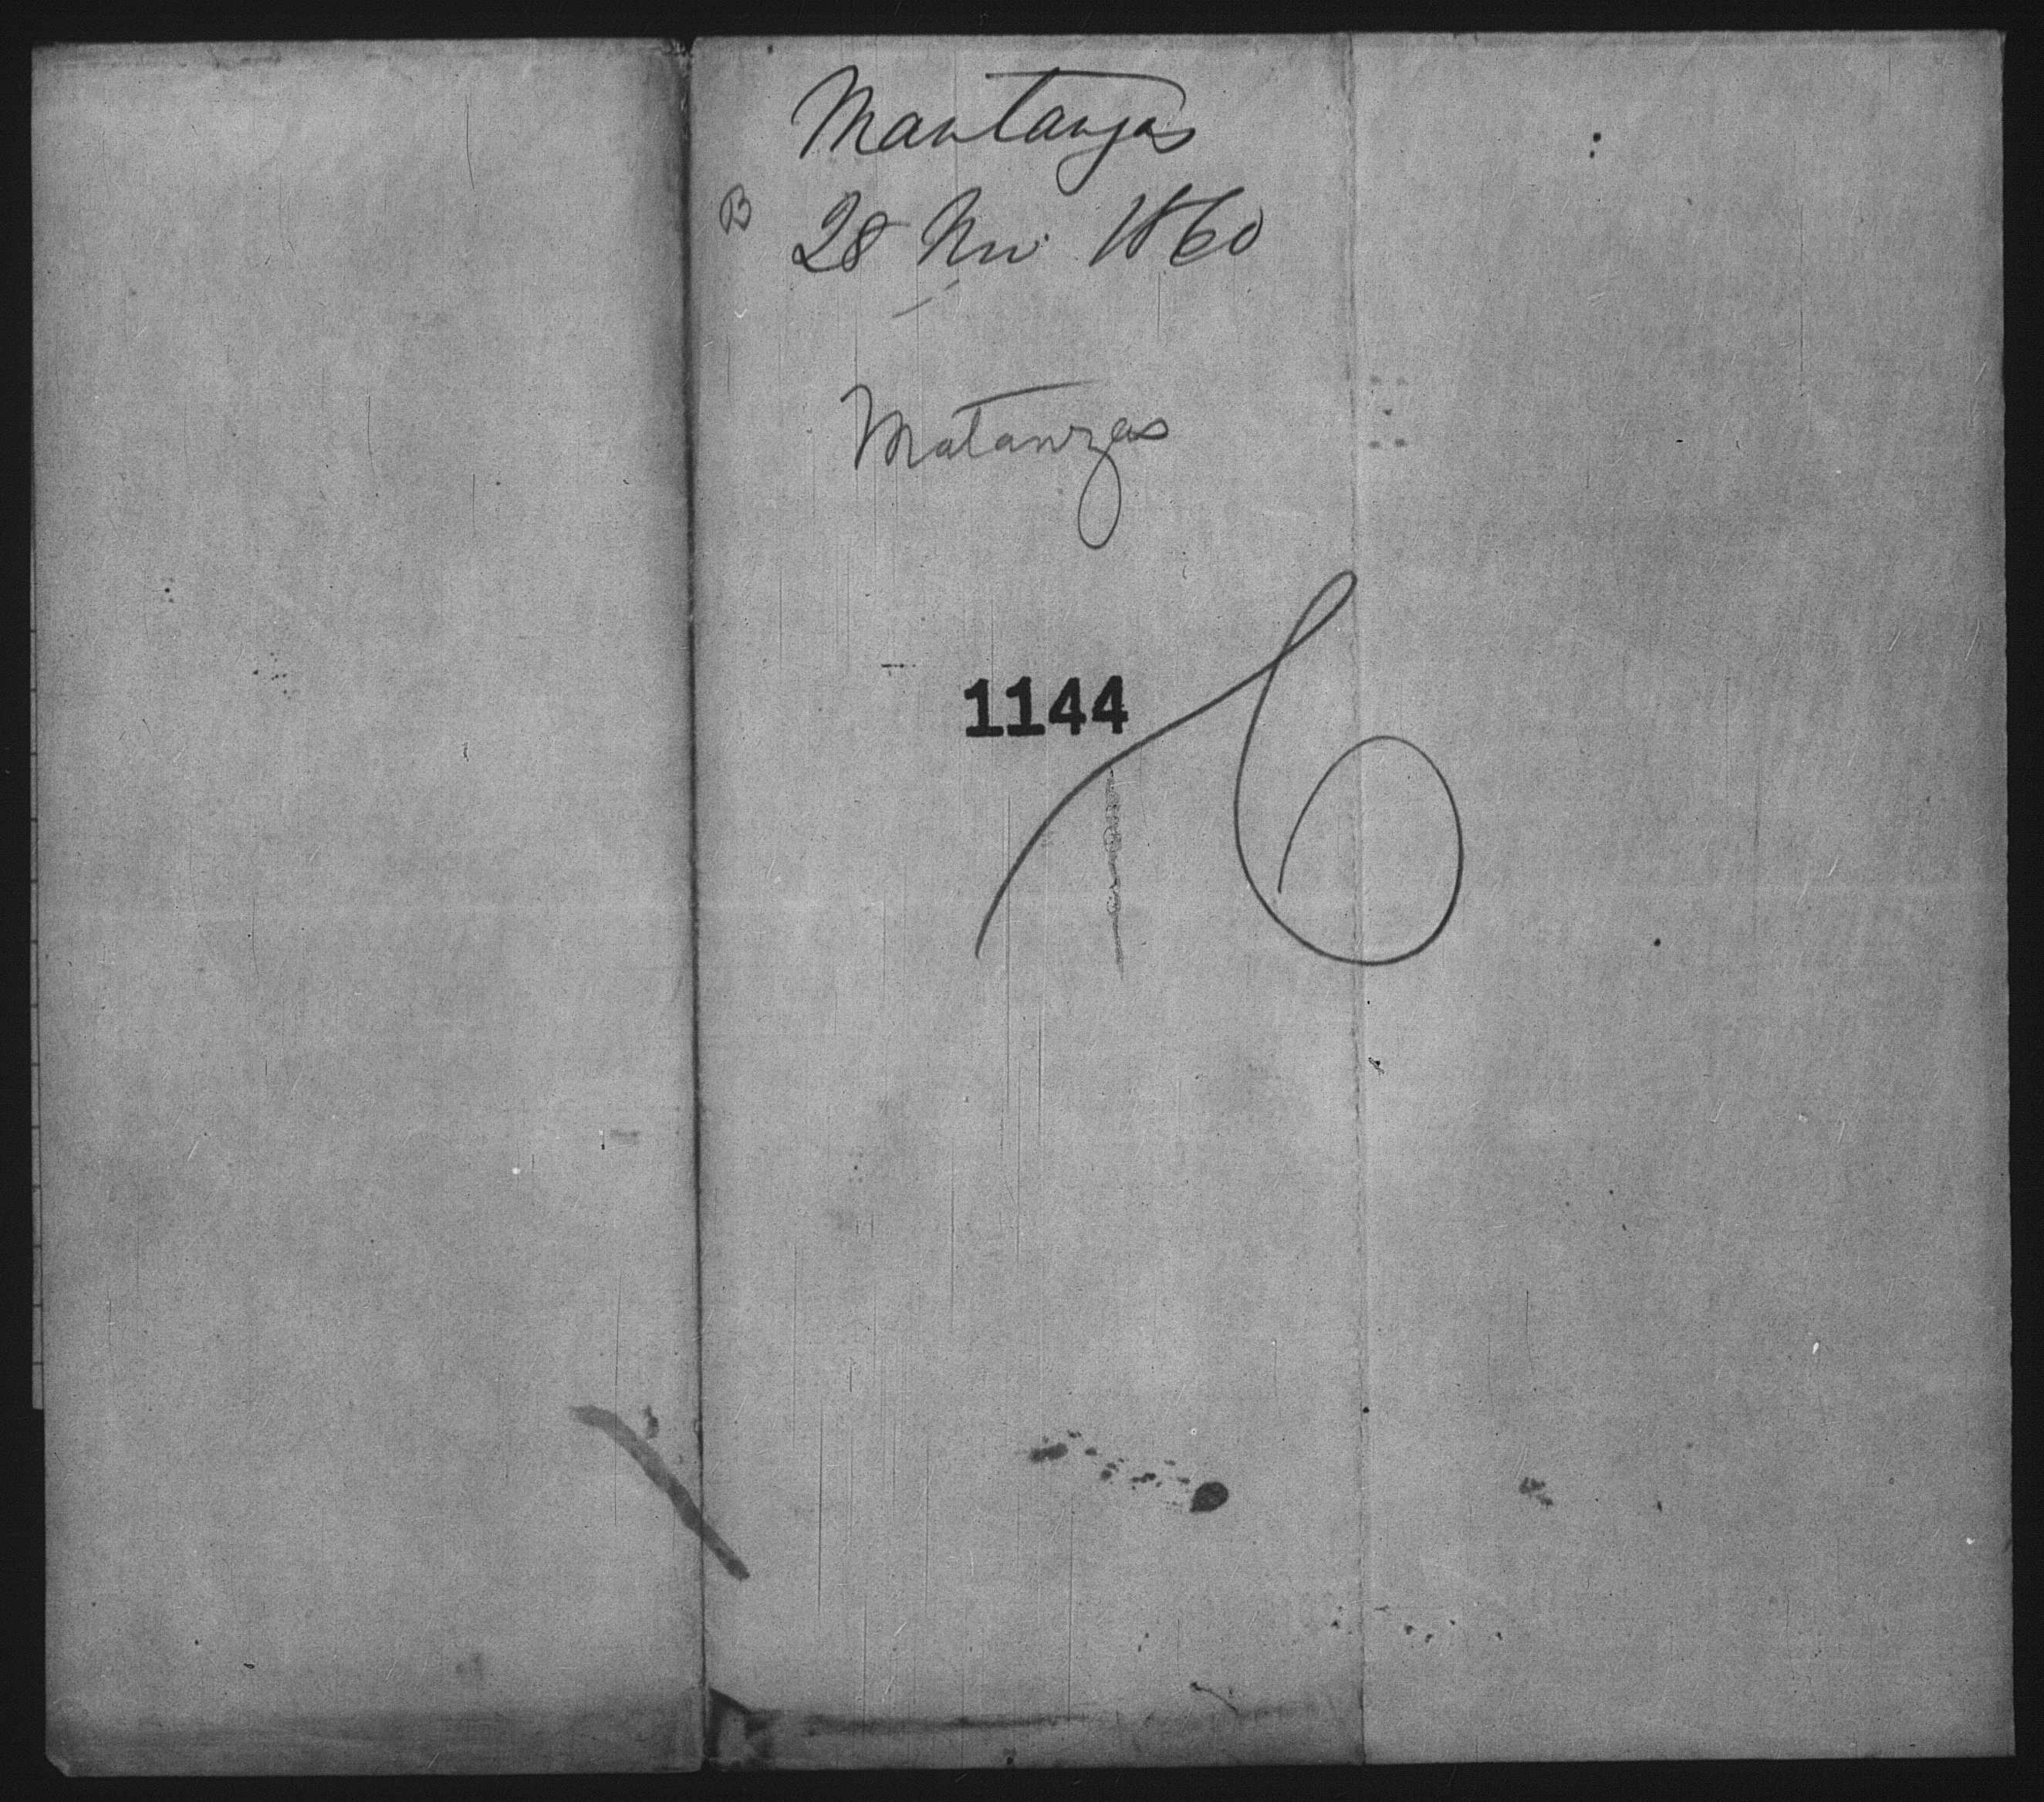 Mantanzas
B 28 Nov. 1860
Matanzas
1144